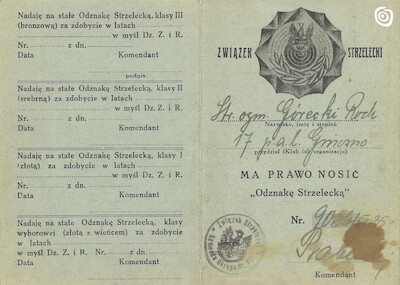 Nadaję na stałe Odznakę Strzelecką, klasy III
(bronzową) za zdobycie w latach
w myśl Dz. Z. i R.
Nr. z dn.
Data Komendant
podpis
Nadaję na stałe Odznakę Strzelecką, klasy II
(srebrną) za zdobycie w latach
w myśl Dz. Z. i R.
Nr. z dn.
Data Komendant
Nadaję na stałe Odznakę Strzelecką, klasy I
(złotą) za zdobycie w latach
w myśl Dz. Z. i R.
Nr. z dn.
Data Komendant
Nadaję na stałe Odznakę Strzelecką, klasy
wyborowej (złotą z wieńcem) za zdobycie
w latach
w myśl Dz. Z. i R. Nr. z dn.
Data Komendant
ZWIĄZEK STRZELECKI
Str. ogm. Górecki Roch
Nazwisko, imię i stopień
17 p.a.l. Gniezno
przydział (Klub lub organizacja)
MA PRAWO NOSIĆ
„Odznakę Strzelecką"
Nr.
Komendant